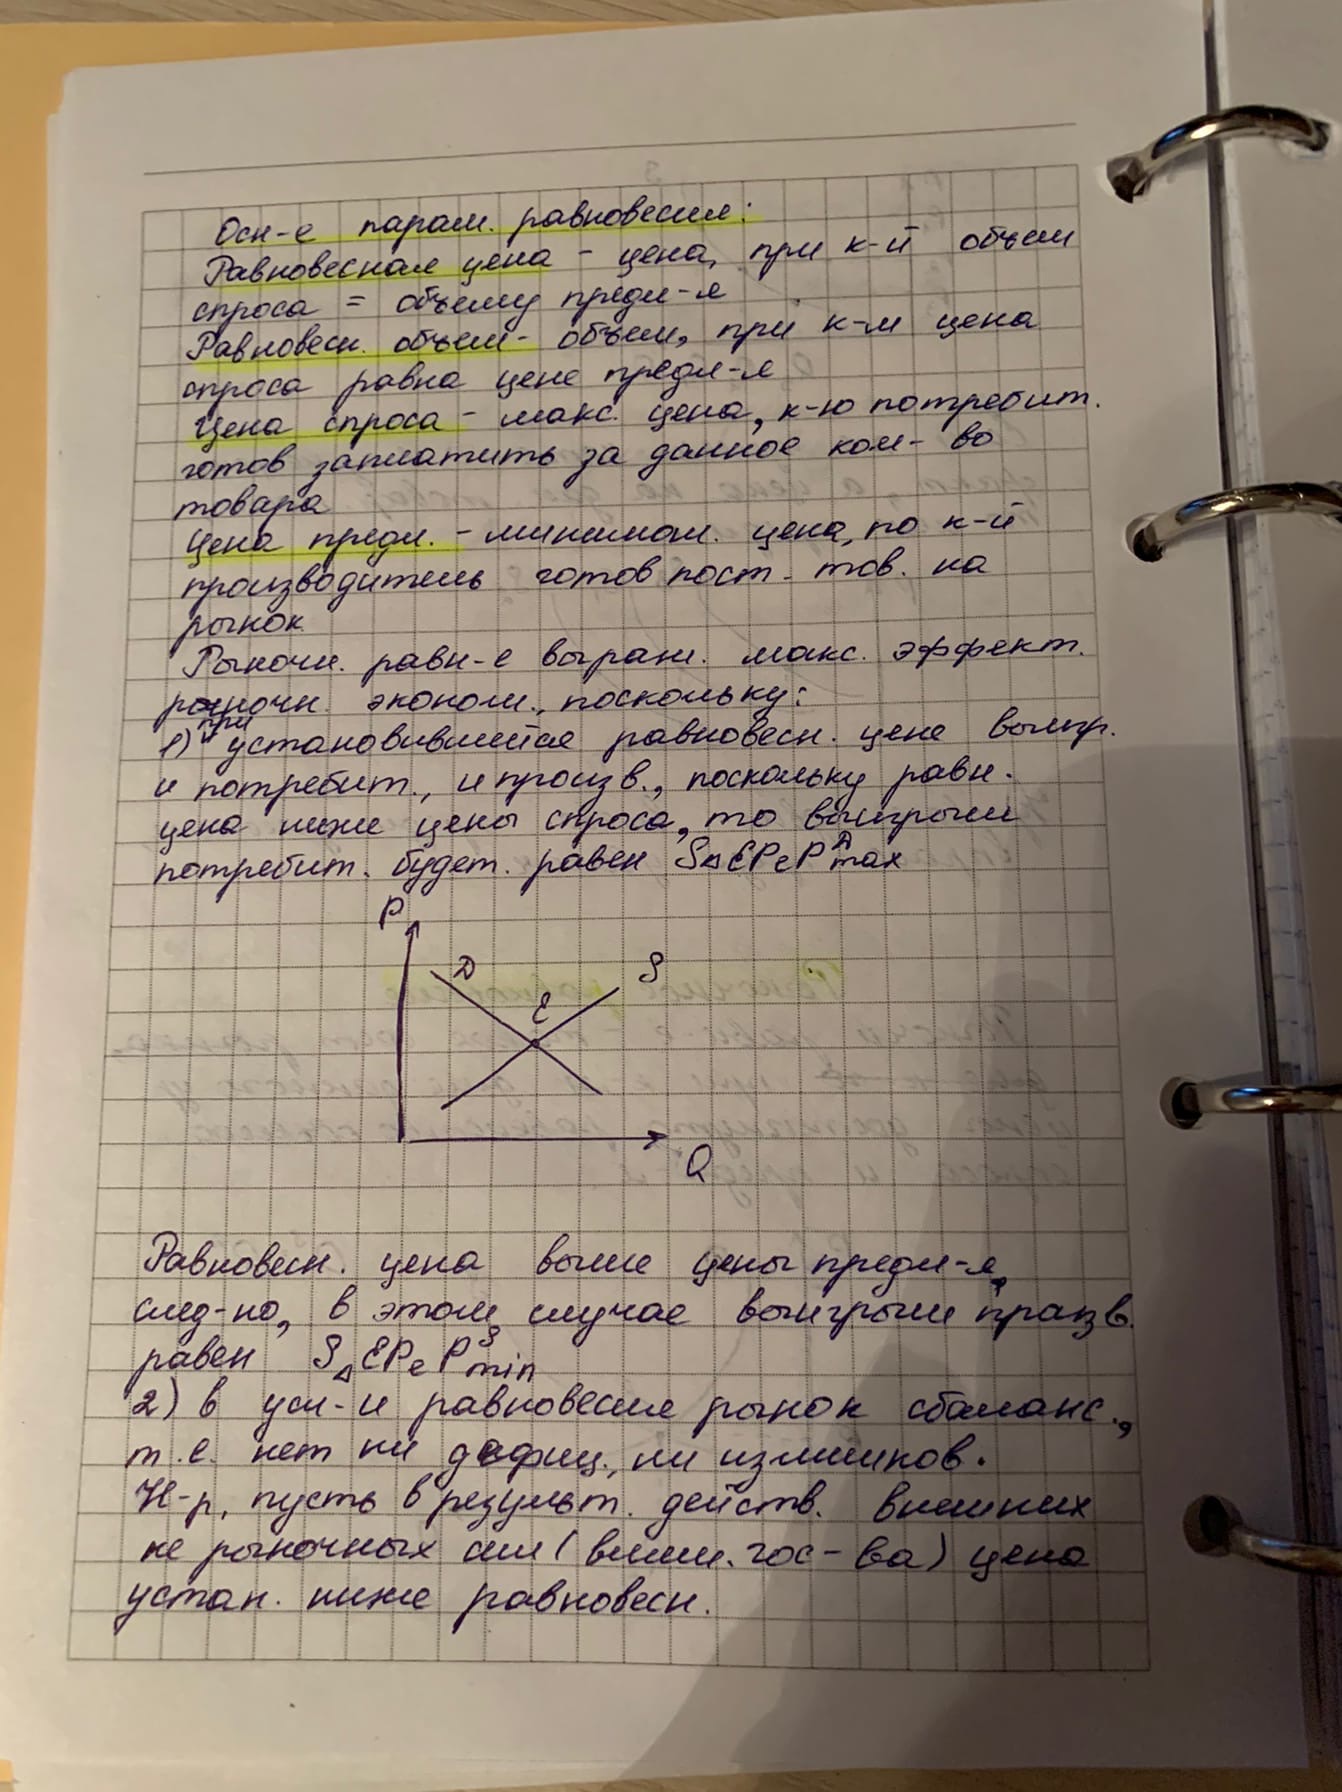 Осн-е парам. равновесия:
Равновесная цена - цена, при к-й объем
спроса = объему предл-я
Равновесн. объем - объем, при к-м цена
спроса равна цене предл-я
Цена спроса - макс. цена, к-ю потребит.
готов заплатить за данное кол-во
товара
Цена предл. - минимал. цена, по к-й
производитель готов пост. тов. на
рынок
Рыночн. равн-е выраж. макс. эффект.
рыночн. эконом., поскольку:
1) при установившейся равновесн. цене выигр.
и потребит., и произв., поскольку равн.
цена ниже цены спроса, то выигрыш
потребит. будет. равен S△EPeP^D max
P
D
S
E
Q
Равновесн. цена выше цены предл-я,
след-но, в этом случае выигрыш произв.
равен S△EPeP^S min
2) в усл-и равновесия рынок сбаланс.,
т.е. нет ни дефиц., ни излишков.
Н-р, пусть в результ. действ. внешних
не рыночных сил (влиян. гос-ва) цена
устан. ниже равновесн.